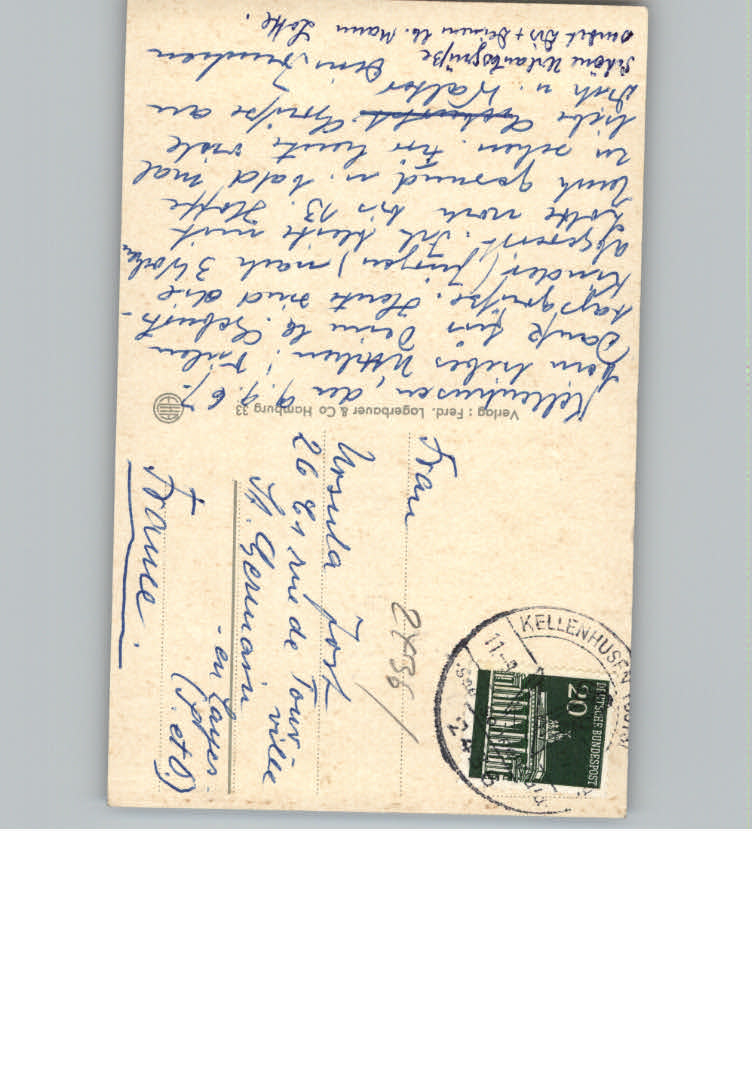 Kellenhusen, den 9.9.67.
Mein liebes Uttilein! Vielen
Dank für Deine lb. Geburts-
tagsgrüße. Heute sind die
Kinder (Jürgen) nach 3 Wochen
abgereist. Ich bleibe mit
Lotte noch bis 13. Hoffe
Euch gesund u. bald mal
zu sehen. Für heute viele
liebe Grüße an
Dich u. Walter Dein
Schöne Urlaubsgrüße
sendet Dir + Deinem lb. Mann Lotte.
Verlag: Ferd. Lagerbauer & Co Hamburg 33
Frau
Ursula Jost
26 rue de Tour-
ville
St. Germain
- en Layes-
(S. et O.)
France.
2436/
KELLENHUSEN
DEUTSCHE BUNDESPOST
20